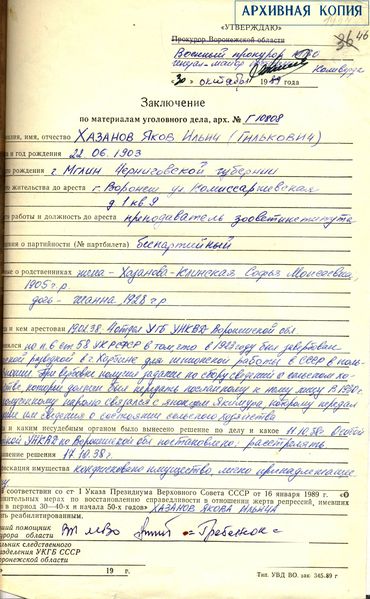 АРХИВНАЯ КОПИЯ
«УТВЕРЖДАЮ»
46
36
Прокурор Воронежской области
Военный прокурор
генерал-майор юстиции
30 октября 1989 года
Заключение
по материалам уголовного дела, арх. № Г 10808
илия, имя, отчество Хазанов Яков Ильич (Гилькович)
и год рождения 22.06.1903
рождения г. Мглин Черниговской губернии
жительства до ареста г. Воронеж ул Комиссаржевская
д 1 кв 9
работы и должность до ареста преподаватель зооветинститута
ения о партийности (№ партбилета) беспартийный
ные о родственниках жена - Хазанова-Клинская Софья Моисеевна,
1905 г.р
дочь - Жанна 1928 г.р
и кем арестован 19.01.38 4 отдел УГБ УНКВД Воронежской обл.
по п. 6 ст. 58 УК РСФСР в том что в 1929 году был завербован
ской разведкой в г. для шпионской работы в СССР в
При вербовке получил задание по сбору сведений о сельском хо-
стве, которые должен был передать посланному к нему лицу. В 1930 г.
паролю связался с японцем которому передал
им сведения о состоянии сельского хозяйства
и каким несудебным органом было вынесено решение по делу и какое 11.10.38 в Особой
УНКВД по Воронежской обл постановлено: расстрелять
нение решения 14.10.38
искация имущества конфисковано имущество, лично принадлежащее
му
соответствии со ст 1 Указа Президиума Верховного Совета СССР от 16 января 1989 г. «О
нительных мерах по восстановлению справедливости в отношении жертв репрессий, имевших
о в период 30—40-х и начало 50-х годов» Хазанов Якова Ильича
ать реабилитированным.
ший помощник
урора области ВП МВО Гребенюк
альник следственного
разделения УКГБ СССР
оронежской области
19 г.
Тип. УВД ВО. зак 345.89 г